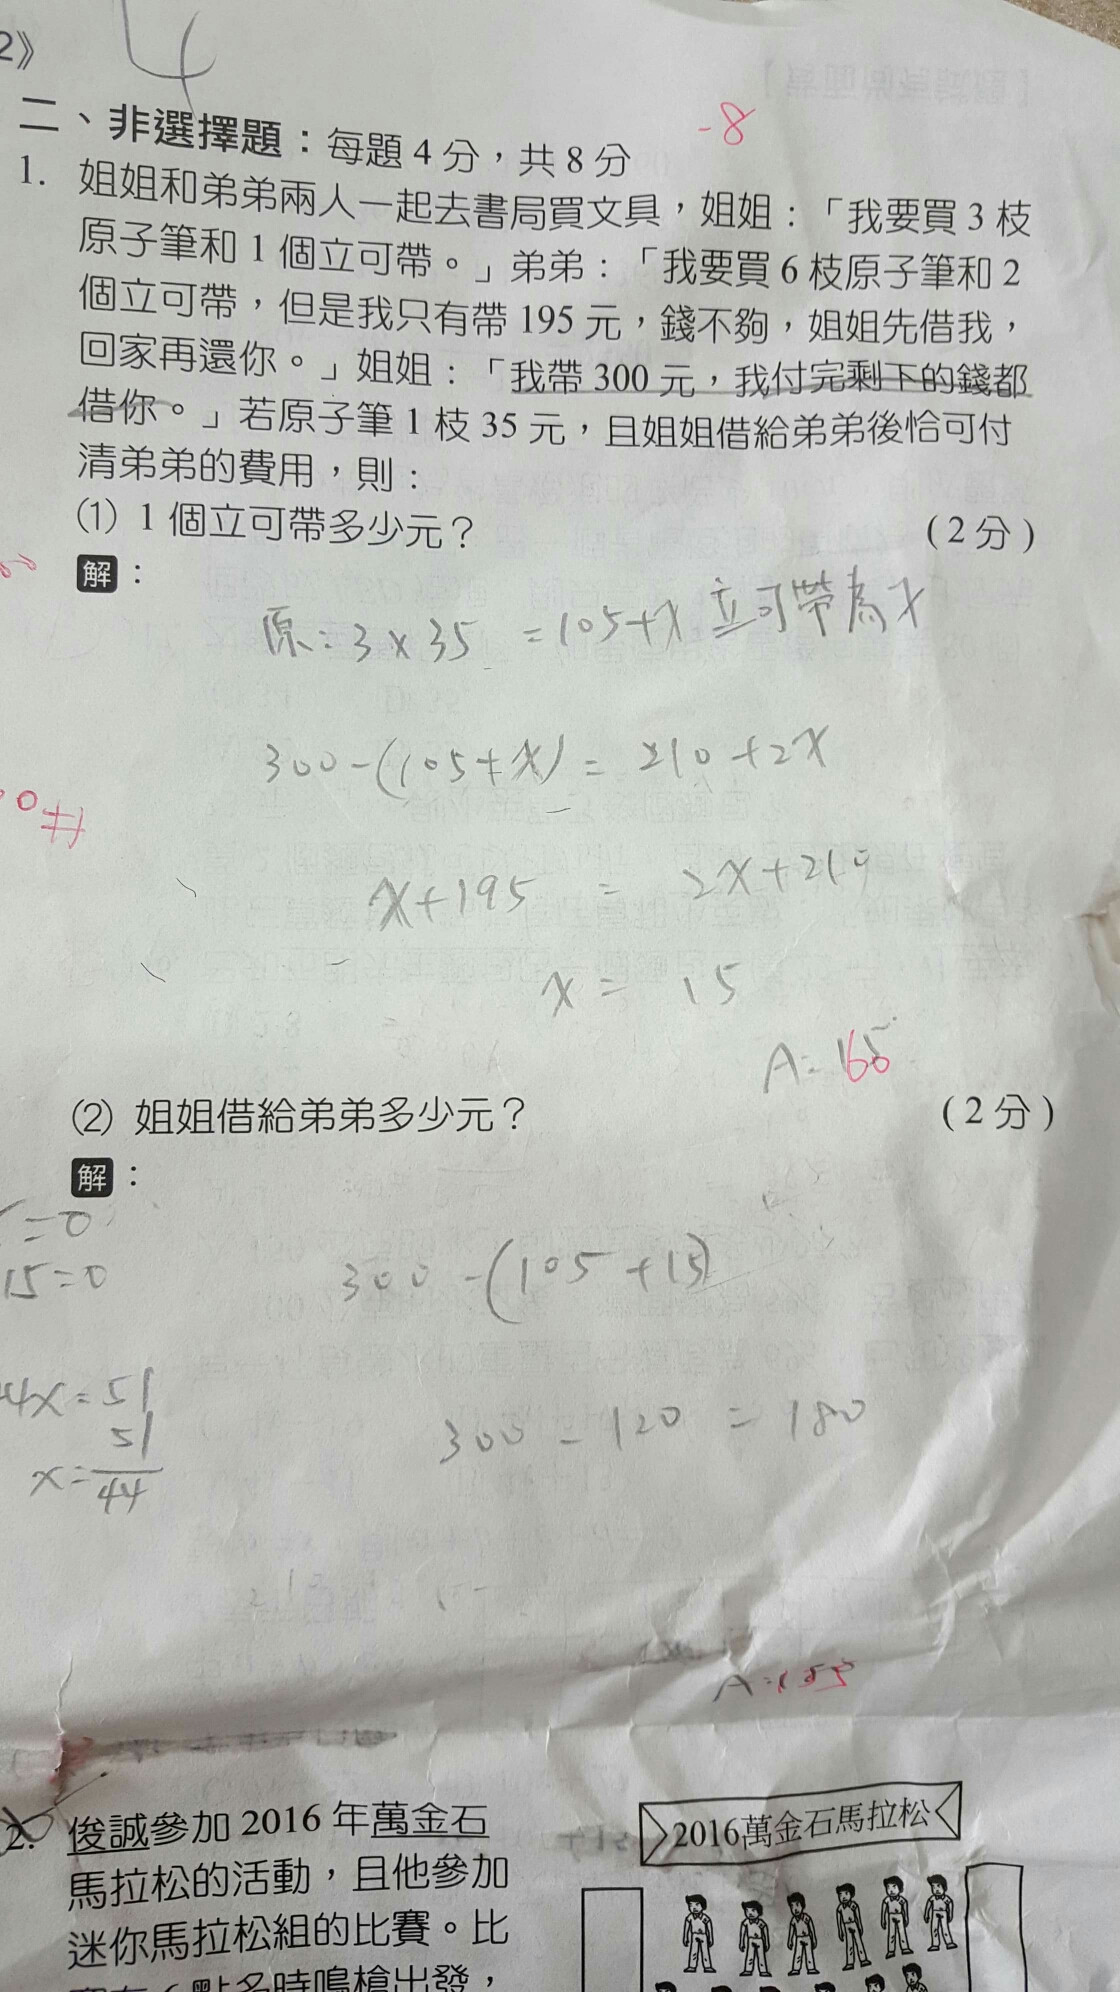 2》
4
-8
二、非選擇題：每題 4 分，共 8 分
1. 姐姐和弟弟兩人一起去書局買文具，姐姐：「我要買 3 枝
原子筆和 1 個立可帶。」弟弟：「我要買 6 枝原子筆和 2
個立可帶，但是我只有帶 195 元，錢不夠，姐姐先借我，
回家再還你。」姐姐：「我帶 300 元，我付完剩下的錢都
借你。」若原子筆 1 枝 35 元，且姐姐借給弟弟後恰可付
清弟弟的費用，則：
(1) 1 個立可帶多少元？ (2 分)
解：
原：3 × 35 = 105+x 立可帶為x
300-(105+x) = 210+2x
x+195 = 2x+210
x = 15
A: 165
(2) 姐姐借給弟弟多少元？ (2 分)
解：
=0
15=0
300 -(105+15)
44x=51
x=51/44
300 - 120 = 180
A:
2. 俊誠參加 2016 年萬金石
馬拉松的活動，且他參加
迷你馬拉松組的比賽。比
2016萬金石馬拉松
點多時鳴槍出發，